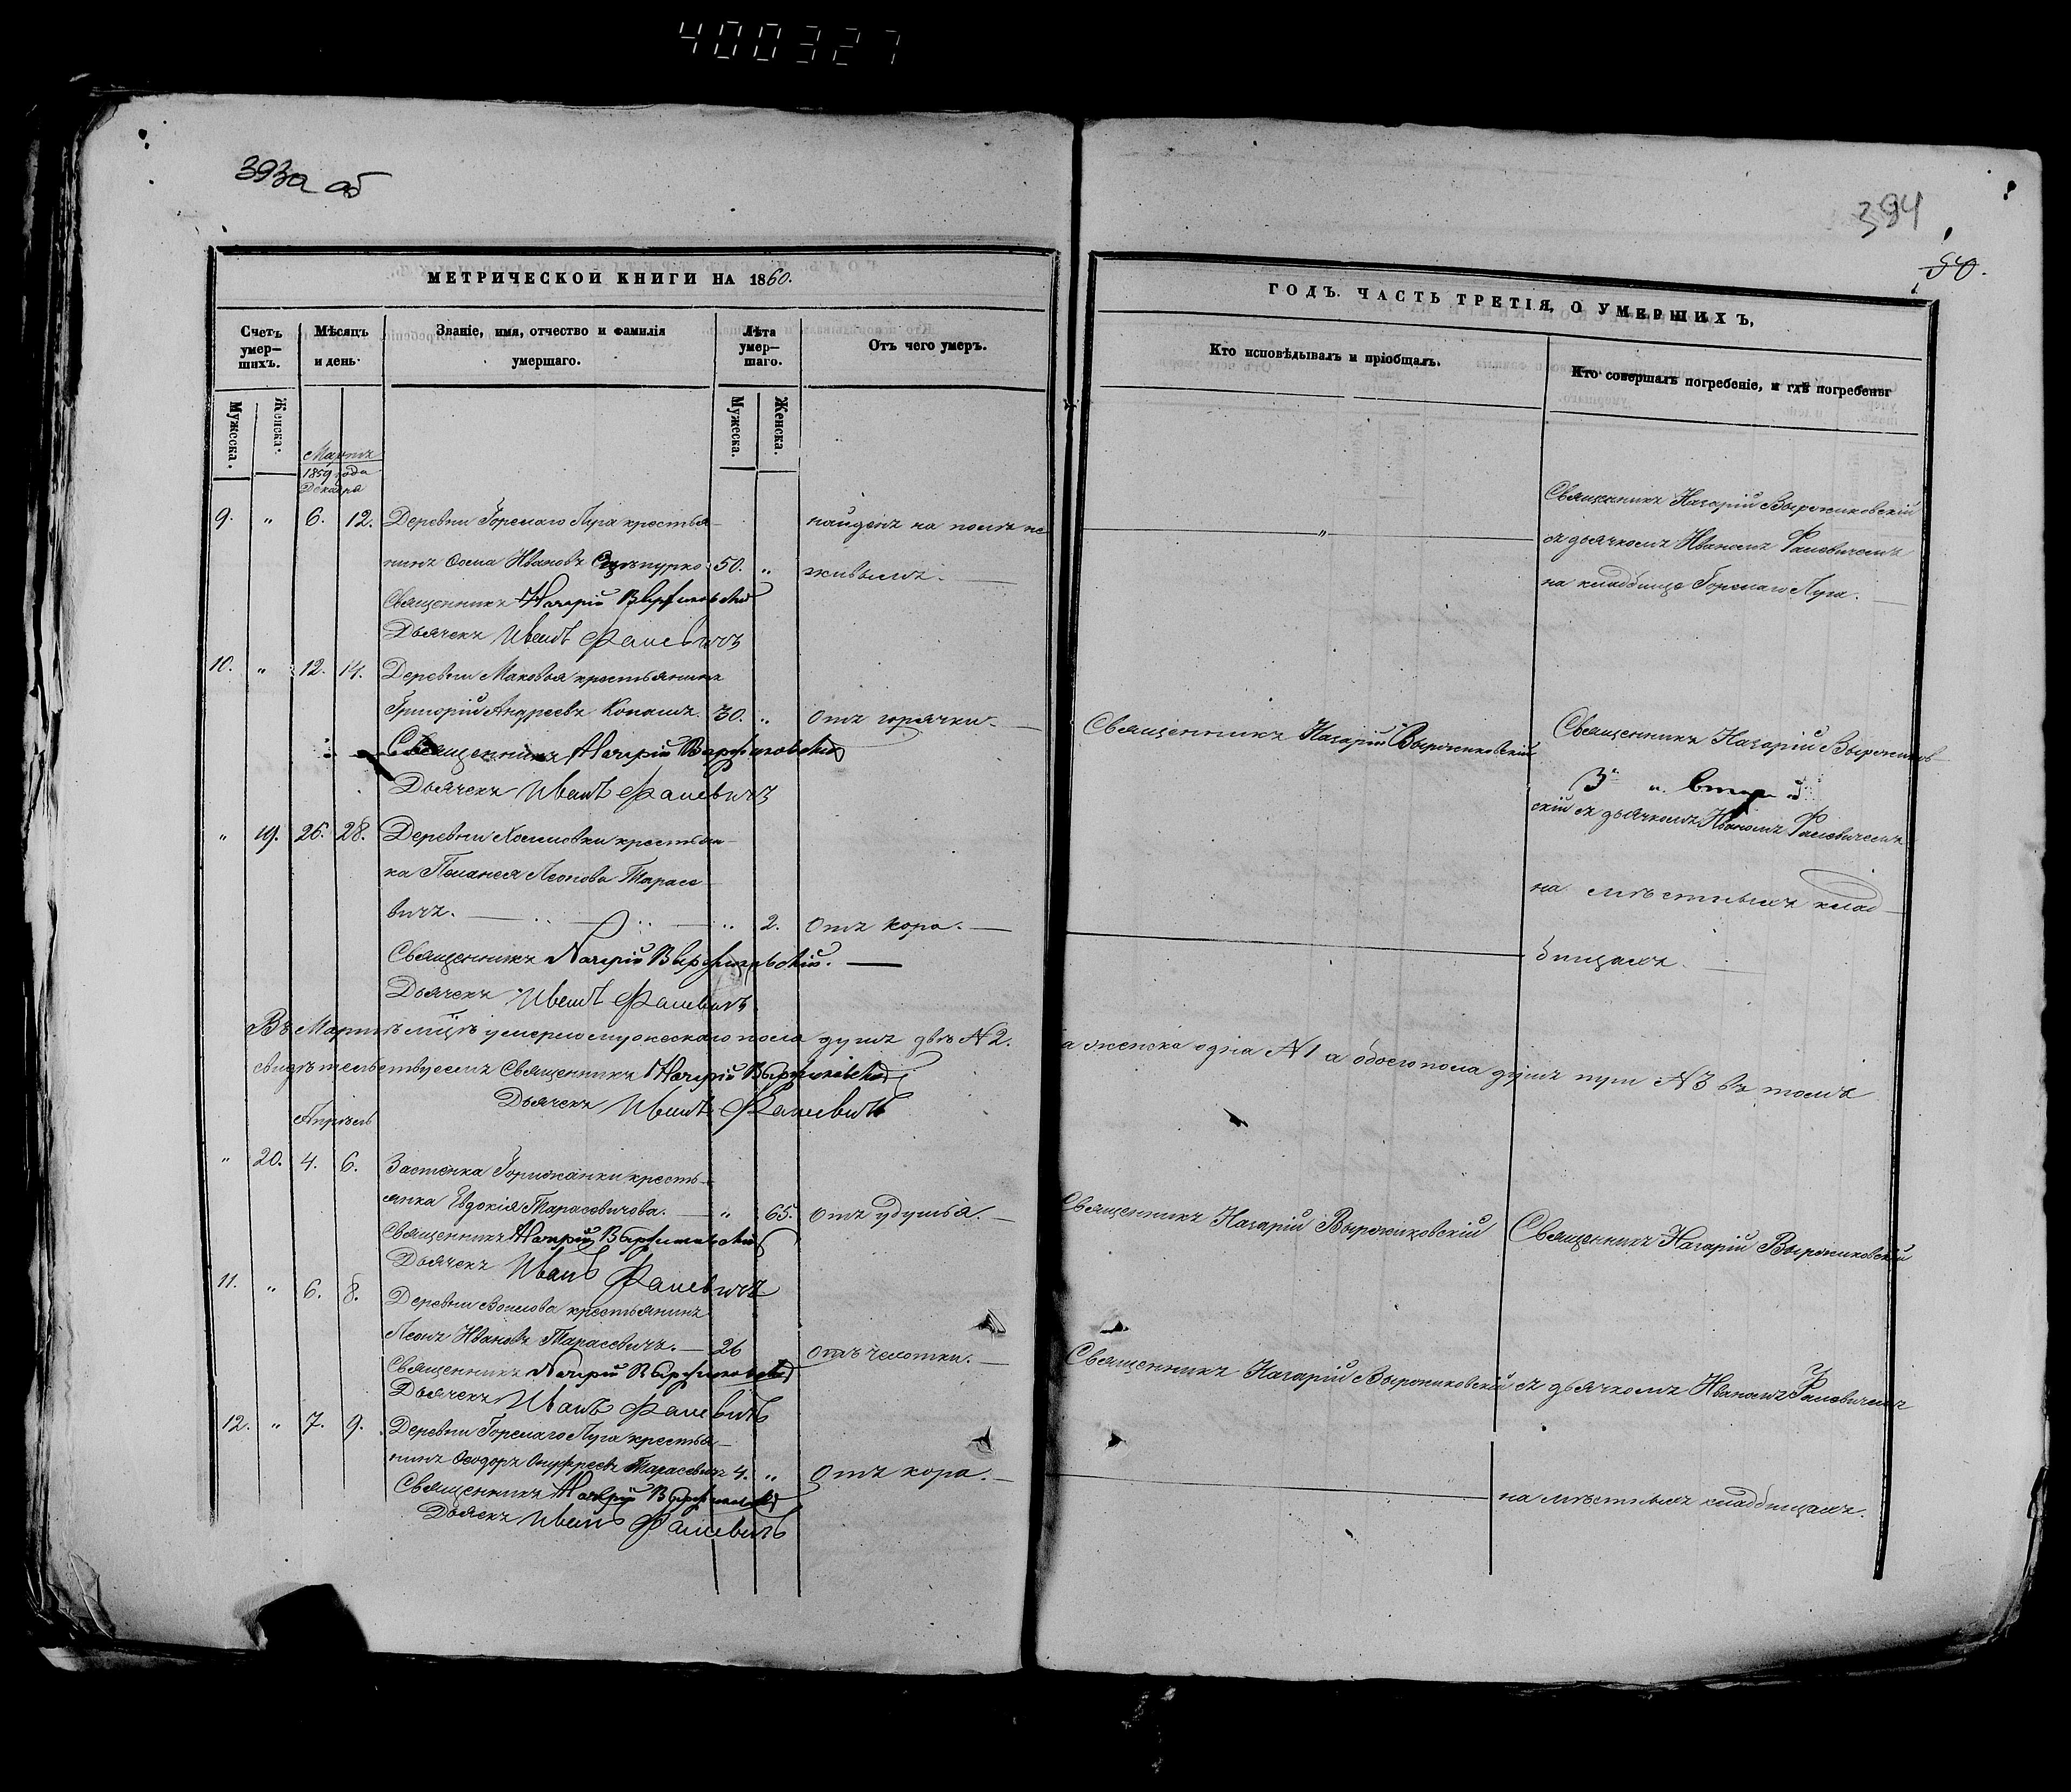 400327
393а об
394
50.
МЕТРИЧЕСКОЙ КНИГИ НА 1860.
Счетъ умер—шихъ.
Мѣсяцъ и день
Званіе, имя, отчество и фамилія умершаго.
Лѣта умер—шаго.
Отъ чего умеръ.
Мужеска. Женска.
Мужеска. Женска.
Мартъ
1859 года
Декабря
9. " 6. 12. Деревни Горелаго Луга крестья- найденъ на поле не
нинъ Ѳома Ивановъ 50. " живымъ.
Священникъ Назарій Выржиковскій
Дьячекъ Иванъ Фалевичъ
10. " 12. 14. Деревни Маковья крестьянинъ
Григорій Андреевъ Копашъ. 30. " Отъ горячки.
Священникъ Назарій Выржиковскій
Дьячекъ Иванъ Фалевичъ
" 19. 26. 28. Деревни Холмовки крестьян-
ка Пеланея Леонова Тарасе-
вичъ. " 2. Отъ кора.
Священникъ Назарій Выржиковскій.
Дьячекъ Иванъ Фалевичъ
Въ Мартѣ мцѣ умерло мужескаго пола душъ двѣ № 2.
свидѣтельствуемъ Священникъ Назарій Выржиковскій
Дьячекъ Иванъ Фалевичъ
Апрѣль
" 20. 4. 6. Застенка Горможанки кресть-
янка Евдокія Тарасовичова. " 65. Отъ удушья.
Священникъ Назарій Выржиковскій
Дьячекъ Иванъ Фалевичъ
11. " 6. 8. Деревни крестьянинъ
Леонъ Ивановъ Тарасевичъ. 26 Отъ чехотки.
Священникъ Назарій Выржиковскій
Дьячекъ Иванъ Фалевичъ
12. " 7. 9. Деревни Горелаго Луга крестья-
нинъ Ѳеодоръ Онуфреевъ Тарасевичъ 4. " Отъ кора.
Священникъ Назарій Выржиковскій
Дьячекъ Иванъ Фалевичъ
ГОДЪ. ЧАСТЬ ТРЕТІЯ, О УМЕРШИХЪ,
Кто исповѣдывалъ и пріобщалъ.
Кто совершалъ погребеніе, и гдѣ погребены
Священникъ Назарій Выржиковскій
" съ дьячкомъ Иваномъ Фалевичемъ
на кладбище Горелаго Луга.
Священникъ Назарій Выржиковскій Священникъ Назарій Выржиков-
скій съ дьячкомъ Иваномъ Фалевичемъ
на мѣстныхъ клад-
бищахъ.
а женска одна № 1 а обоего пола душъ три № 3 въ томъ
Священникъ Назарій Выржиковскій Священникъ Назарій Выржиковскій
Священникъ Назарій Выржиковскій съ дьячкомъ Иваномъ Фалевичемъ
на мѣстныхъ кладбищахъ.